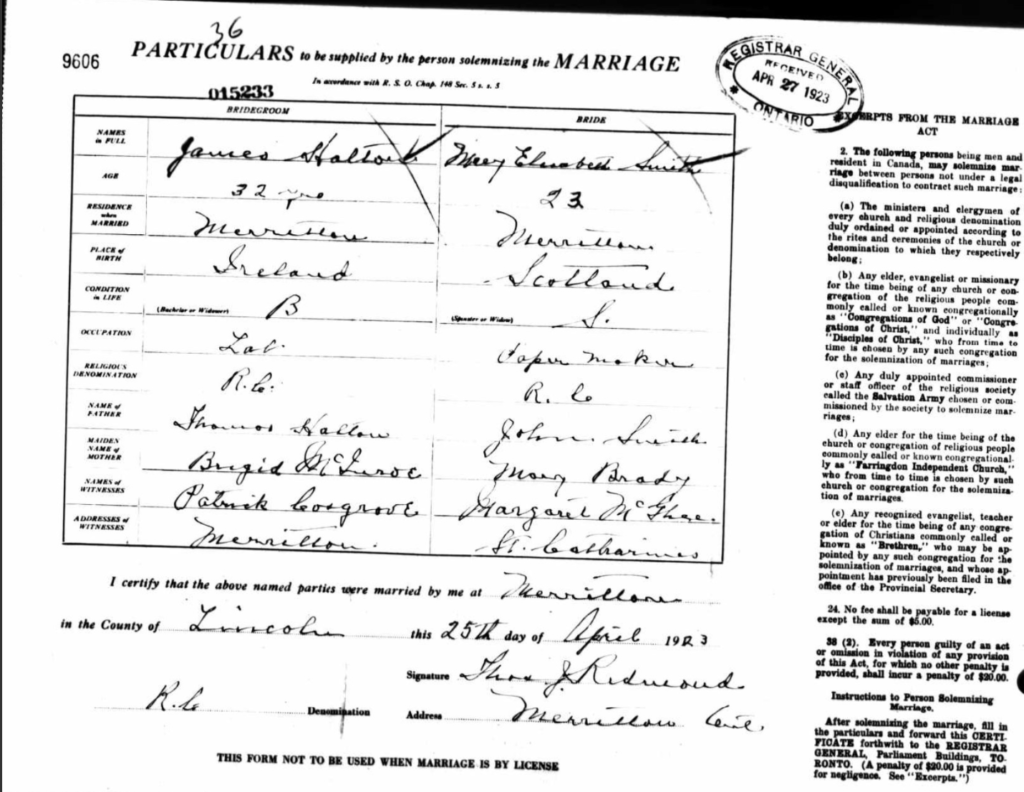 36
9606
PARTICULARS to be supplied by the person solemnizing the MARRIAGE
In accordance with R. S. O. Chap. 148 Sec. 5 s. s. 5
015233
REGISTRAR GENERAL
RECEIVED
APR 27 1923
ONTARIO
BRIDEGROOM BRIDE
NAMES in FULL James Hatton Mary Elizabeth Smith
AGE 32 yrs 23
RESIDENCE when MARRIED Merritton Merritton
PLACE of BIRTH Ireland Scotland
CONDITION in LIFE (Bachelor or Widower) B (Spinster or Widow) S.
OCCUPATION Lab. Paper Maker
RELIGIOUS DENOMINATION R.C. R. C
NAME of FATHER Thomas John Smith
MAIDEN NAME of MOTHER Brigid Mary Brady
NAMES of WITNESSES Patrick Cosgrove Margaret McGhee
ADDRESSES of WITNESSES Merritton. St. Catharines
I certify that the above named parties were married by me at Merritton
in the County of Lincoln this 25th day of April 1923
Signature Thos J. Redmond
R.C Denomination Address Merritton Ont.
THIS FORM NOT TO BE USED WHEN MARRIAGE IS BY LICENSE
EXCERPTS FROM THE MARRIAGE
ACT
2. The following persons being men and
resident in Canada, may solemnize mar-
riage between persons not under a legal
disqualification to contract such marriage:
(a) The ministers and clergymen of
every church and religious denomination
duly ordained or appointed according to
the rites and ceremonies of the church or
denomination to which they respectively
belong;
(b) Any elder, evangelist or missionary
for the time being of any church or con-
gregation of the religious people com-
monly called or known congregationally
as "Congregations of God" or "Congre-
gations of Christ," and individually as
"Disciples of Christ," who from time to
time is chosen by any such congregation
for the solemnization of marriages;
(c) Any duly appointed commissioner
or staff officer of the religious society
called the Salvation Army chosen or com-
missioned by the society to solemnize mar-
riages;
(d) Any elder for the time being of the
church or congregation of religious people
commonly called or known congregational-
ly as "Farringdon Independent Church,"
who from time to time is chosen by such
church or congregation for the solemniza-
tion of marriages.
(e) Any recognized evangelist, teacher
or elder for the time being of any congre-
gation of Christians commonly called or
known as "Brethren," who may be ap-
pointed by any such congregation for the
solemnization of marriages, and whose ap-
pointment has previously been filed in the
office of the Provincial Secretary.
24. No fee shall be payable for a license
except the sum of $5.00.
38 (2). Every person guilty of an act
or omission in violation of any provision
of this Act, for which no other penalty is
provided, shall incur a penalty of $20.00.
Instructions to Person Solemnizing
Marriage.
After solemnizing the marriage, fill in
the particulars and forward this CERTI-
FICATE forthwith to the REGISTRAR
GENERAL, Parliament Buildings, TO-
RONTO. (A penalty of $20.00 is provided
for negligence. See "Excerpts.")